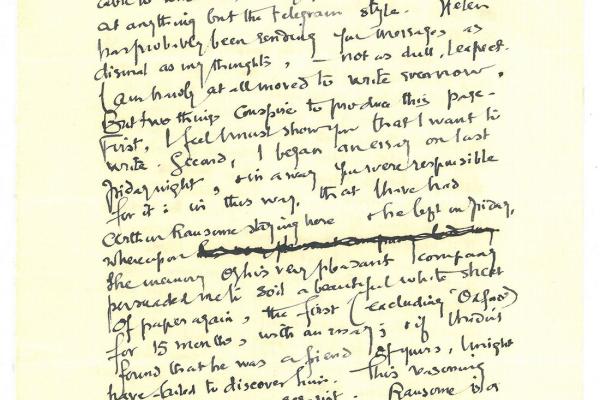 at anything but the telegram style. Helen
has probably been sending you messages as
dismal as my thoughts, — not as dull, I expect.
I am hardly at all moved to write even now.
But two things conspire to produce this page.
First, I feel I must show you that I want to
write. Second, I began an essay on last
Friday night, & in a way you were responsible
for it: in this way, that I have had
Arthur Ransome staying here & he left on Friday,
whereupon
the memory of his very pleasant company
persuaded me to soil a beautiful white sheet
of paper again, the first (excluding 'Oxford')
for 15 months, with an essay; & if I had
found that he was a friend of yours, I might
have failed to discover him. This reasoning
Ransome is a